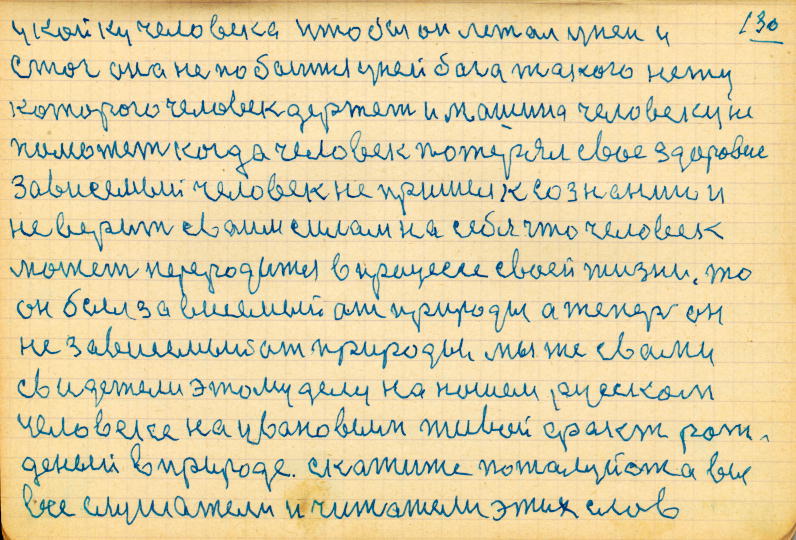 130
укой ку человека чтобы он летал у неи и
стог она не поболится у ней бога такого нету
которого человек держет и машина человеку не
поможет когда человек потерял свое здоровие
зависемый человек не пришел к сознанию и
не верит своим силам на себя что человек
может переродится в процесе своей жизни. то
он был зависемый от природы а тепер он
не зависемый от природы. мы же с вами
свидетели этому делу на ношем русском
человеке на ивановым живой факт рож-
деный в природе. скажите пожалуйста вы
все слушатели и читатели этих слов